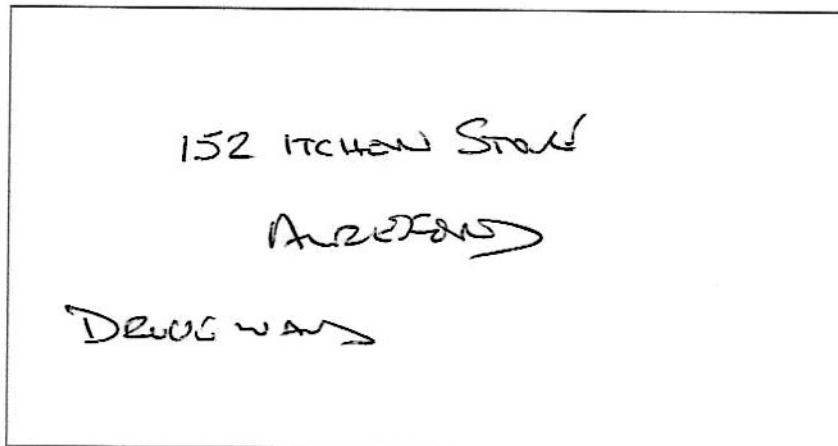 152 ITCHEN STOKE
ALRESFORD
DRIVEWAY